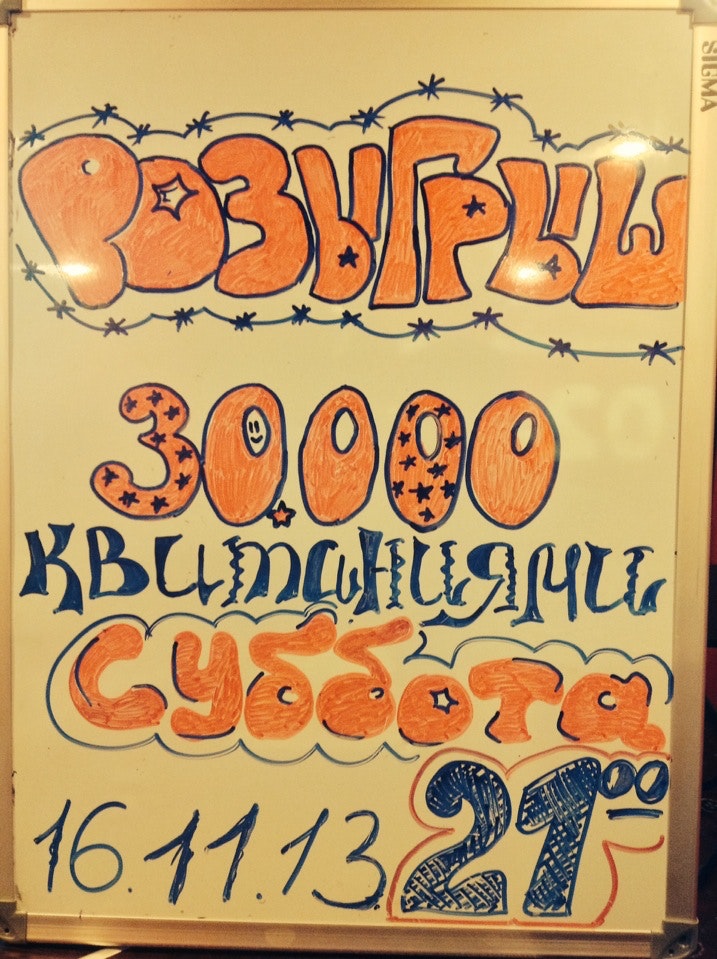 РОЗЫГРЫШ
30.000
КВИТАНЦИЯМИ
СУББОТА
16.11.13 21 00
SIGMA